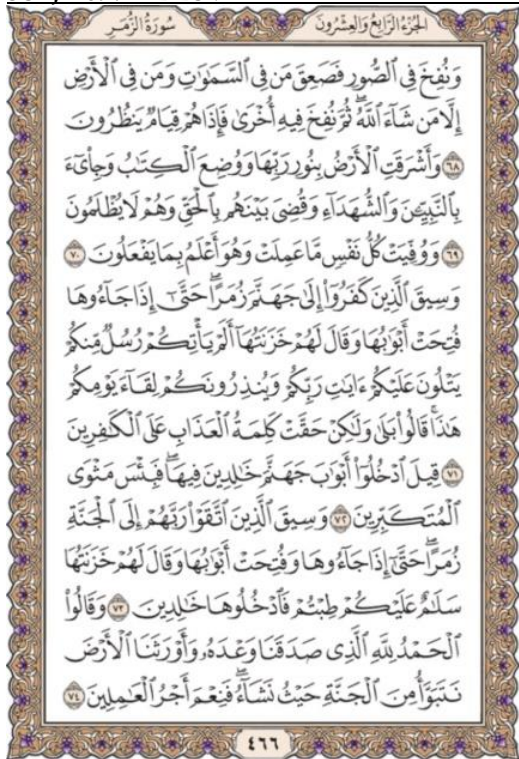 الجزء الرابع والعشرون
سورة الزمر
وَنُفِخَ فِي ٱلصُّورِ فَصَعِقَ مَن فِي ٱلسَّمَٰوَٰتِ وَمَن فِي ٱلْأَرْضِ
إِلَّا مَن شَآءَ ٱللَّهُۖ ثُمَّ نُفِخَ فِيهِ أُخْرَىٰ فَإِذَا هُمْ قِيَامٌ يَنظُرُونَ
٦٨ وَأَشْرَقَتِ ٱلْأَرْضُ بِنُورِ رَبِّهَا وَوُضِعَ ٱلْكِتَٰبُ وَجِاْيٓءَ
بِٱلنَّبِيِّـۧنَ وَٱلشُّهَدَآءِ وَقُضِيَ بَيْنَهُم بِٱلْحَقِّ وَهُمْ لَا يُظْلَمُونَ
٦٩ وَوُفِّيَتْ كُلُّ نَفْسٍ مَّا عَمِلَتْ وَهُوَ أَعْلَمُ بِمَا يَفْعَلُونَ ٧٠
وَسِيقَ ٱلَّذِينَ كَفَرُوٓاْ إِلَىٰ جَهَنَّمَ زُمَرًاۖ حَتَّىٰٓ إِذَا جَآءُوهَا
فُتِحَتْ أَبْوَٰبُهَا وَقَالَ لَهُمْ خَزَنَتُهَآ أَلَمْ يَأْتِكُمْ رُسُلٌ مِّنكُمْ
يَتْلُونَ عَلَيْكُمْ ءَايَٰتِ رَبِّكُمْ وَيُنذِرُونَكُمْ لِقَآءَ يَوْمِكُمْ
هَٰذَاۚ قَالُواْ بَلَىٰ وَلَٰكِنْ حَقَّتْ كَلِمَةُ ٱلْعَذَابِ عَلَى ٱلْكَٰفِرِينَ
٧١ قِيلَ ٱدْخُلُوٓاْ أَبْوَٰبَ جَهَنَّمَ خَٰلِدِينَ فِيهَاۖ فَبِئْسَ مَثْوَى
ٱلْمُتَكَبِّرِينَ ٧٢ وَسِيقَ ٱلَّذِينَ ٱتَّقَوْاْ رَبَّهُمْ إِلَى ٱلْجَنَّةِ
زُمَرًاۖ حَتَّىٰٓ إِذَا جَآءُوهَا وَفُتِحَتْ أَبْوَٰبُهَا وَقَالَ لَهُمْ خَزَنَتُهَا
سَلَٰمٌ عَلَيْكُمْ طِبْتُمْ فَٱدْخُلُوهَا خَٰلِدِينَ ٧٣ وَقَالُواْ
ٱلْحَمْدُ لِلَّهِ ٱلَّذِي صَدَقَنَا وَعْدَهُۥ وَأَوْرَثَنَا ٱلْأَرْضَ
نَتَبَوَّأُ مِنَ ٱلْجَنَّةِ حَيْثُ نَشَآءُۖ فَنِعْمَ أَجْرُ ٱلْعَٰمِلِينَ ٧٤
٤٦٦